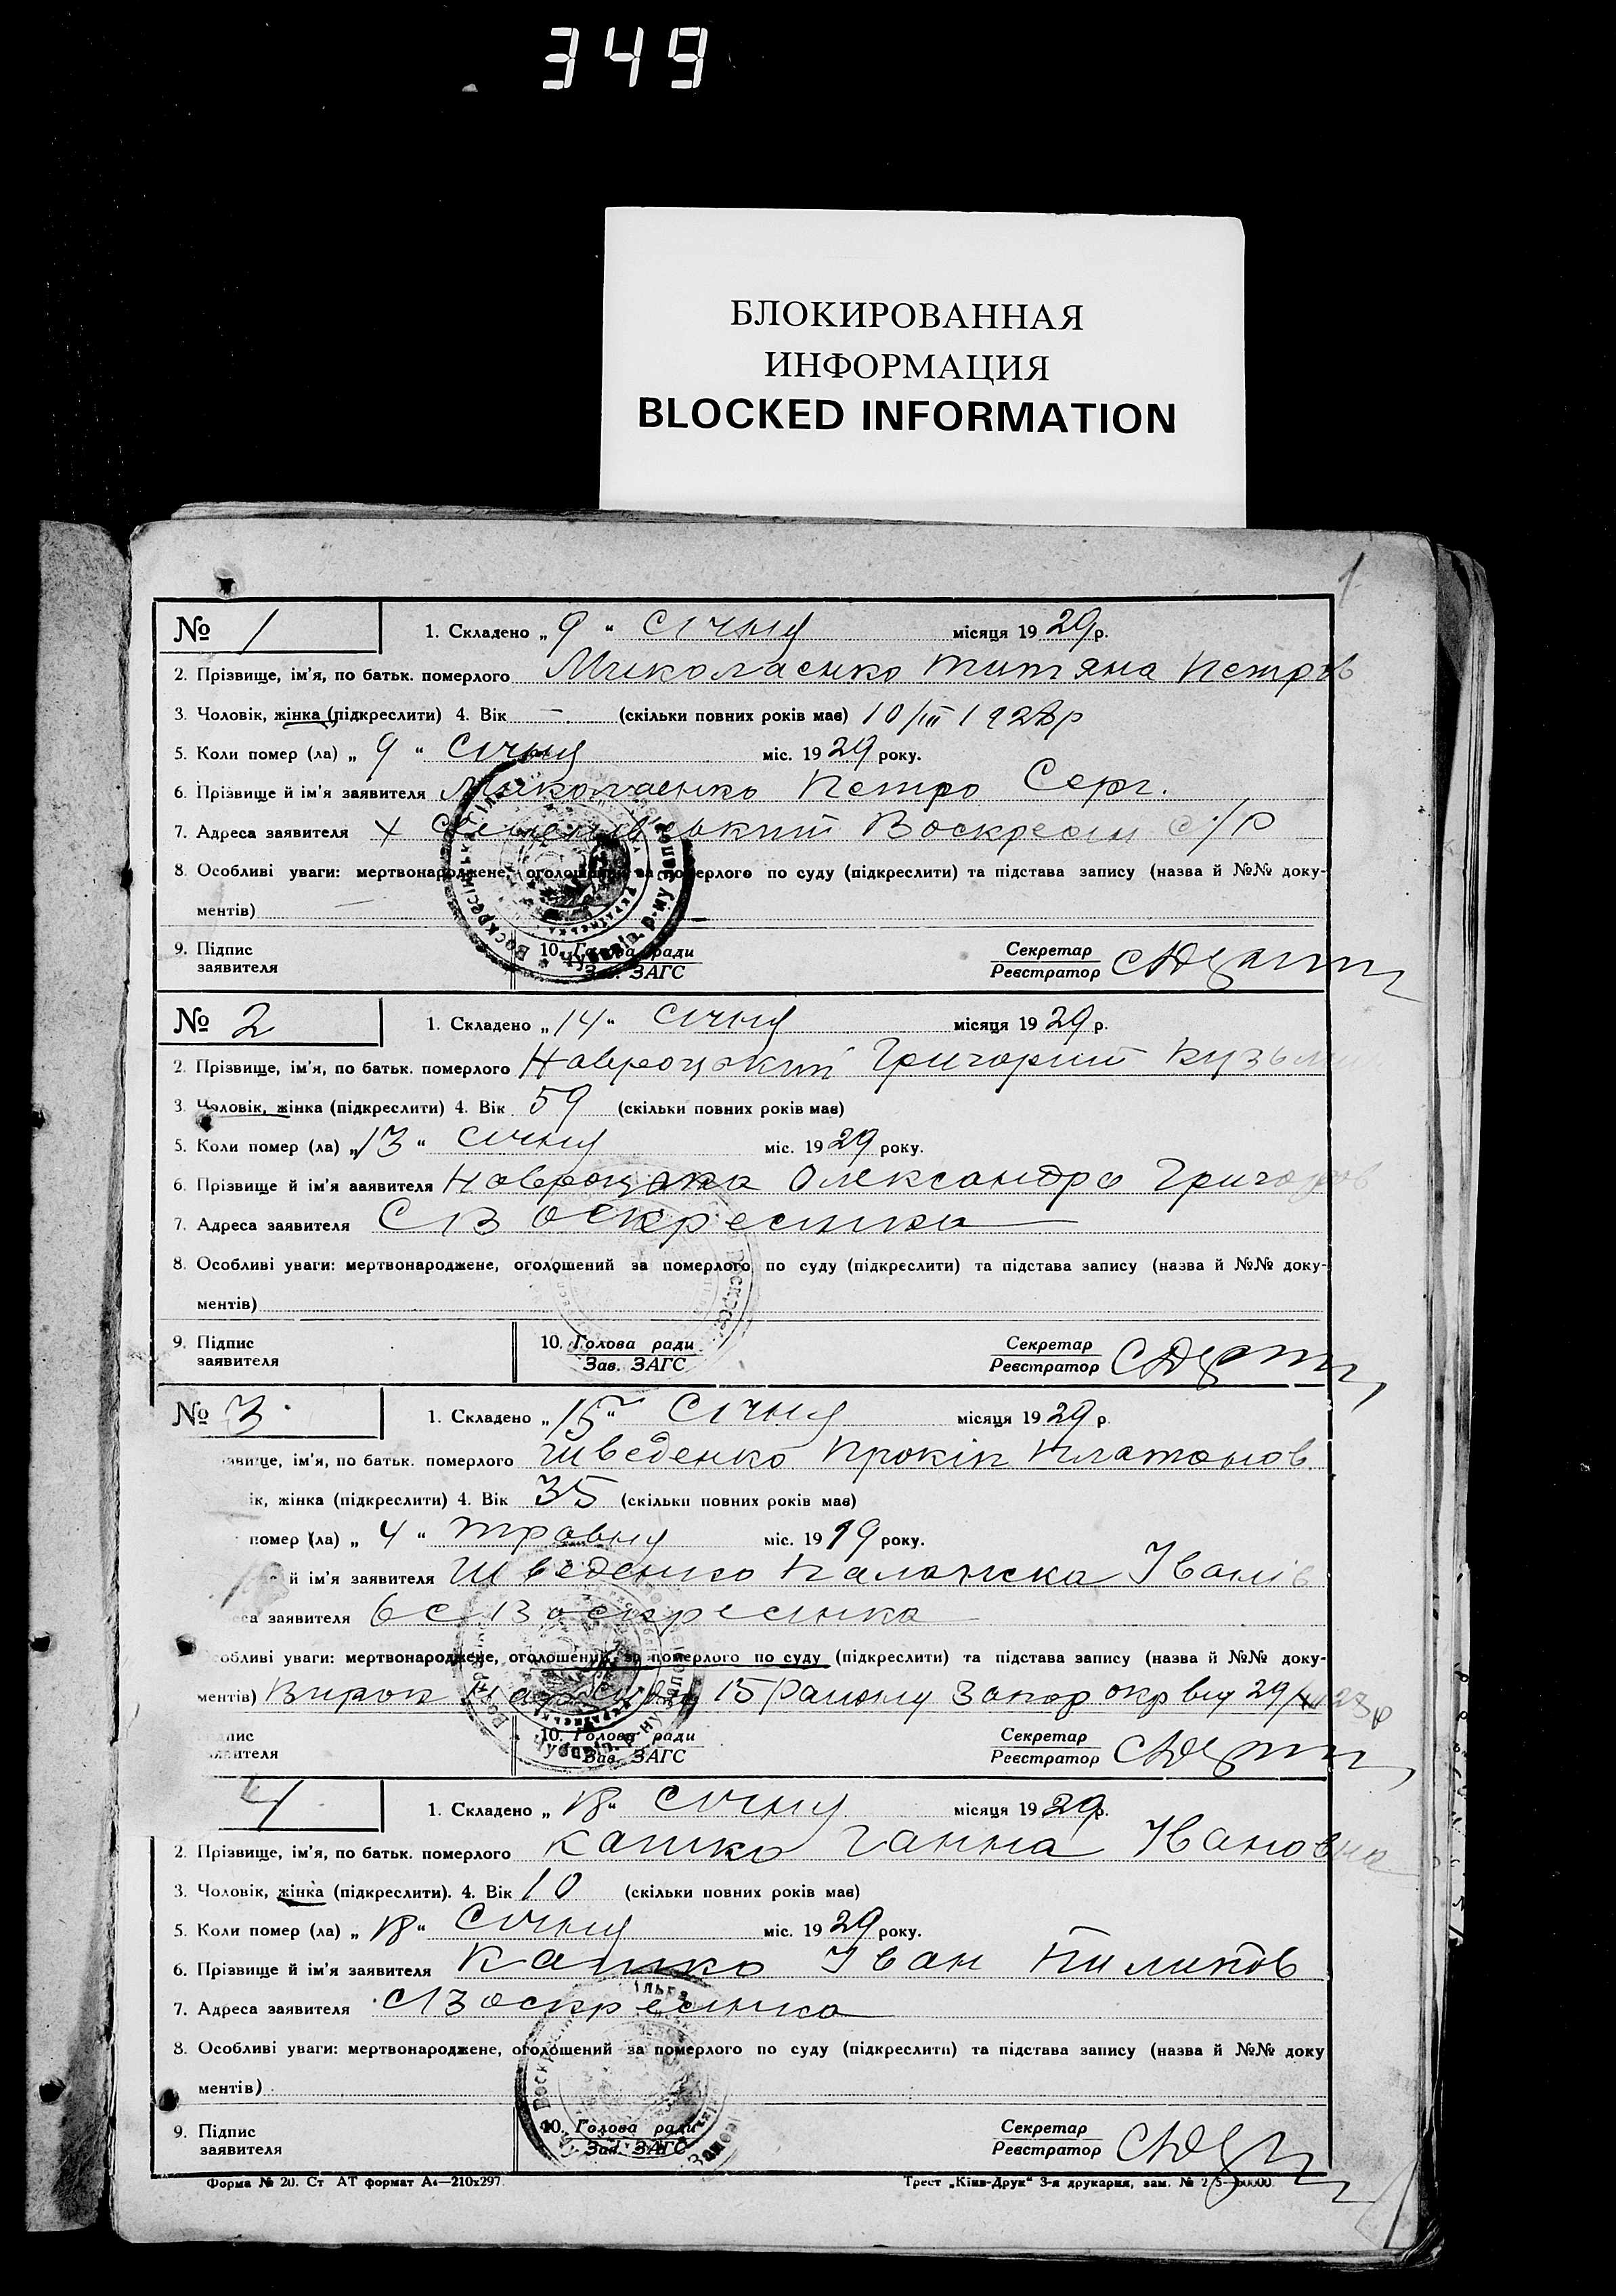 349
БЛОКИРОВАННАЯ
ИНФОРМАЦИЯ
BLOCKED INFORMATION
1
№ 1 1. Складено „ 9 “ Січня місяця 1929 р.
2. Прізвище, ім'я, по батьк. померлого Миколаенко Титяна Петров
3. Чоловік, жінка (підкреслити) 4. Вік — (скільки повних років має) 10/III 1928р
5. Коли помер (ла) „ 9 “ Січня міс. 1929 року.
6. Прізвище й ім'я заявителя Миколаенко Петро Серг.
7. Адреса заявителя х Воскресин с/р
8. Особливі уваги: мертвонароджене, оголошений за померлого по суду (підкреслити) та підстава запису (назва й №№ доку-
ментів) —
9. Підпис 10. Голова ради Секретар
заявителя Зав. ЗАГС Реєстратор
№ 2 1. Складено „ 14 “ січня місяця 1929 р.
2. Прізвище, ім'я, по батьк. померлого Навроцький Григорий Кузьм
3. Чоловік, жінка (підкреслити) 4. Вік 59 (скільки повних років має)
5. Коли помер (ла) „ 13 “ січня міс. 1929 року.
6. Прізвище й ім'я заявителя Навроцька Олександра Григоров
7. Адреса заявителя С Воскресинка
8. Особливі уваги: мертвонароджене, оголошений за померлого по суду (підкреслити) та підстава запису (назва й №№ доку-
ментів)
9. Підпис 10. Голова ради Секретар
заявителя Зав. ЗАГС Реєстратор
№ 3 1. Складено „ 15 “ Січня місяця 1929 р.
звище, ім'я, по батьк. померлого Шведенко Прокіп Платонов
ік, жінка (підкреслити) 4. Вік 35 (скільки повних років має)
помер (ла) „ 4 “ травня міс. 1919 року.
й ім'я заявителя Шведенко Палажка Іванів
са заявителя с Воскресинка
обливі уваги: мертвонароджене, оголошений за померлого по суду (підкреслити) та підстава запису (назва й №№ доку-
ментів) Вирок Нар Суду 15 Району Запор окр від 29/
дпис 10. Голова ради Секретар
явителя Зав. ЗАГС Реєстратор
4 1. Складено „ 18 “ Січня місяця 1929 р.
2. Прізвище, ім'я, по батьк. померлого Кашко Ганна Івановна
3. Чоловік, жінка (підкреслити). 4. Вік 10 (скільки повних років має)
5. Коли помер (ла) „ 18 “ Січня міс. 1929 року.
6. Прізвище й ім'я заявителя Кашко Іван Пилипов
7. Адреса заявителя с Воскресинка
8. Особливі уваги: мертвонароджене, оголошений за померлого по суду (підкреслити) та підстава запису (назва й №№ доку
ментів)
9. Підпис 10. Голова ради Секретар
заявителя Зав. ЗАГС Реєстратор
Форма № 20. Ст АТ формат А4—210х297 Трест „Київ-Друк“ 3-я друкарня, зам. №